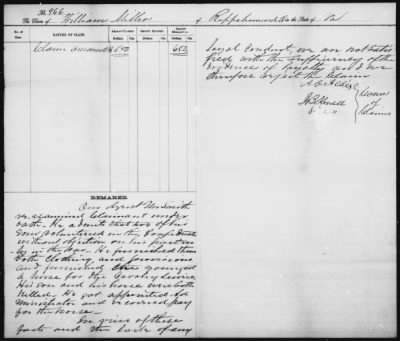 No. 966
The Claim of William Miller of Rappahannock Co in the State of Va
No. of Item.
NATURE OF CLAIM.
AMOUNT CLAIMED.
AMOUNT ALLOWED.
AMOUNT DISALLOWED.
Dollars Cts.
Dollars Cts.
Dollars Cts.
Claim amounts
650
650
REMARKS.
Our Agent
re-examined Claimant under
oath. He admits that two of his
Sons volunteered in the Confederate
without objection on his part
in the War. He furnished them
both Clothing, and provisions
and furnished the youngest
a horse for the Cavalry Service
His son and his horse were both
Killed. He got appointed Ad-
ministrator and received pay
for the horse.
In view of these
facts and the lack of any
loyal conduct, we are not satis-
fied with the sufficiency of the
evidence of loyalty and we
therefore reject the Claim
A O Aldis
J B Howell
Comrs
of
Claims